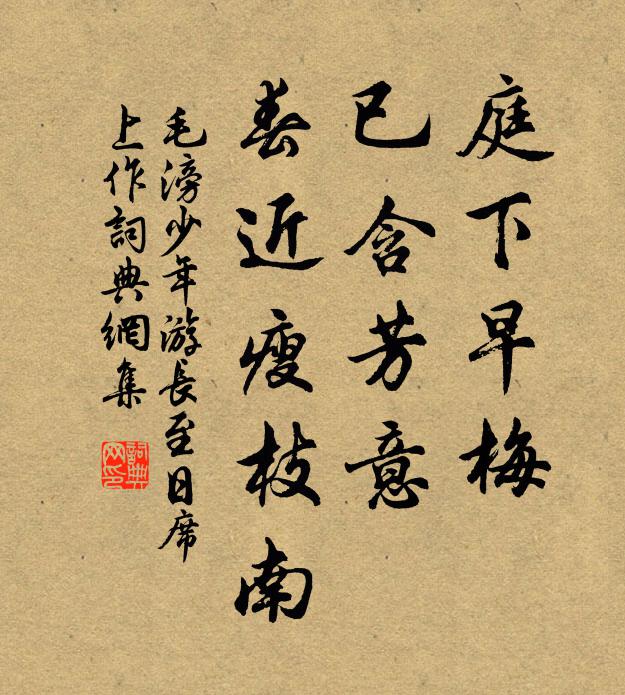 庭下早梅
已含芳意
春近瘦枝南
毛滂少年游長至日席
上作詞典網集
詞典网印